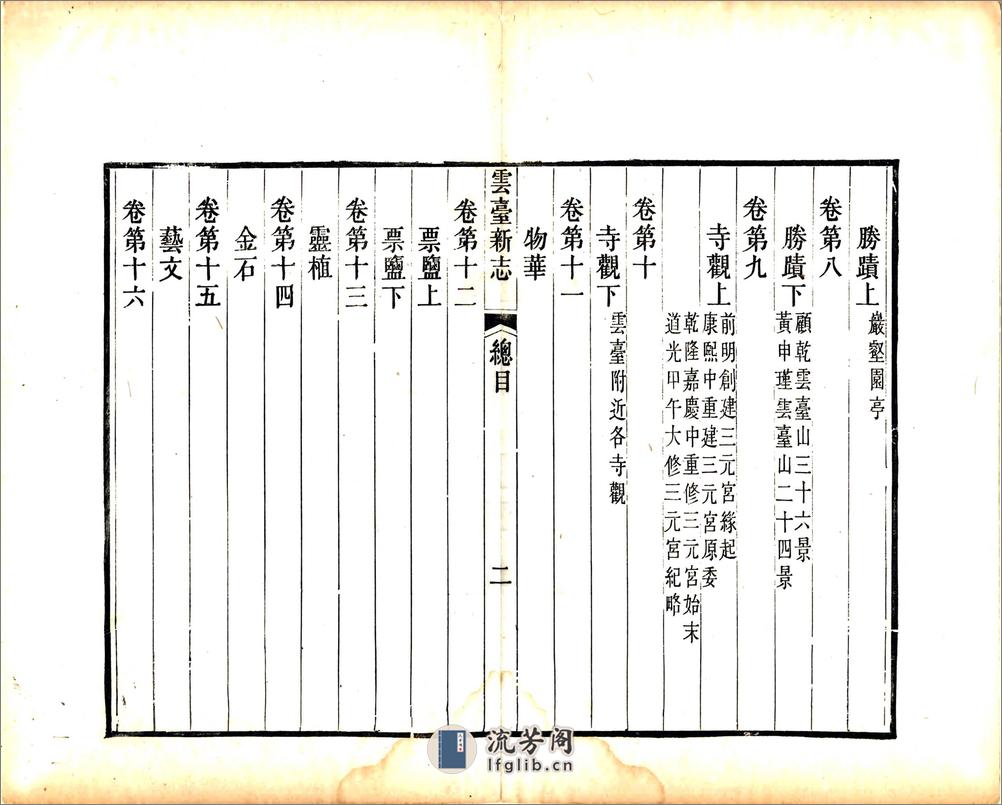 勝蹟上 巖壑園亭
卷第八
勝蹟下 顧乾雲臺山三十六景
黃申瑾雲臺山二十四景
卷第九
寺觀上 前明創建三元宮緣起
康熙中重建三元宮原委
乾隆嘉慶中重修三元宮始末
道光甲午大修三元宮紀略
卷第十
寺觀下 雲臺附近各寺觀
卷第十一
物華
雲臺新志 總目 二
卷第十二
票鹽上
票鹽下
卷第十三
靈植
卷第十四
金石
卷第十五
藝文
卷第十六
流芳阁
lfglib.cn